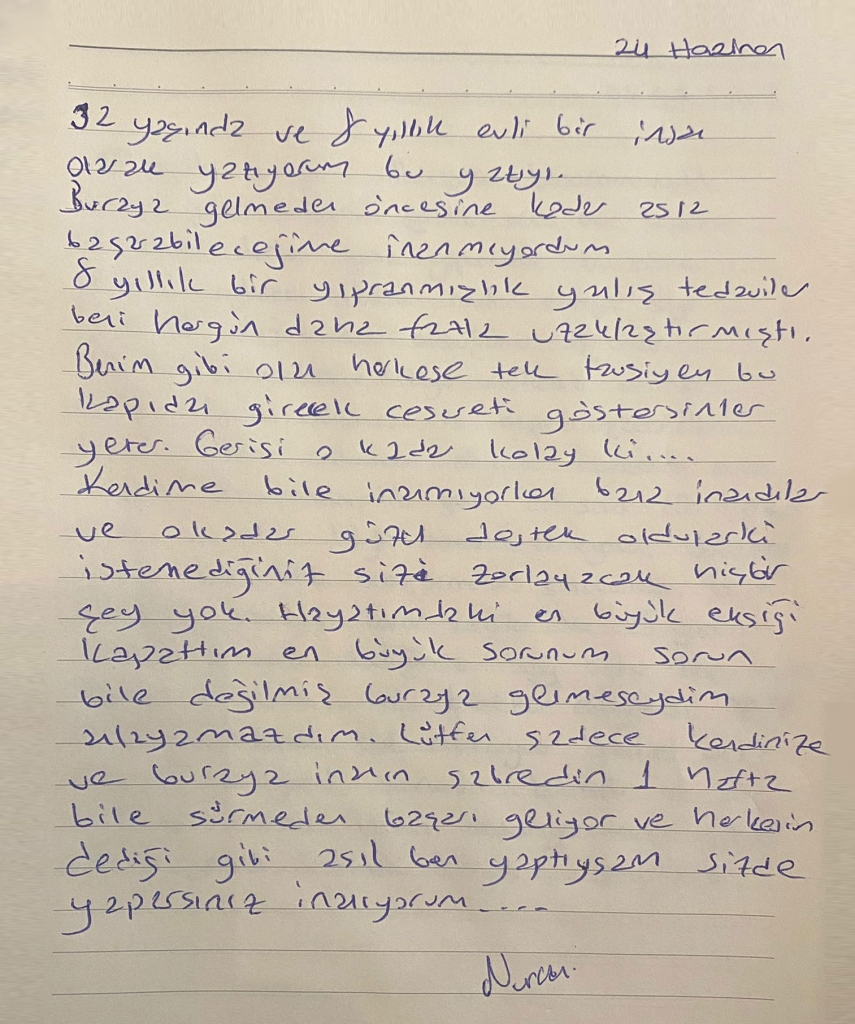 24 Haziran
32 yaşında ve 8 yıllık evli bir insan
olarak yazıyorum bu yazıyı.
Buraya gelmeden öncesine kadar asla
başarabileceğime inanmıyordum
8 yıllık bir yıpranmışlık yanlış tedaviler
beni hergün daha fazla uzaklaştırmıştı.
Benim gibi olan herkese tek tavsiyem bu
kapıdan girecek cesareti göstersinler
yeter. Gerisi o kadar kolay ki....
Kendime bile inanmıyorken bana inandılar
ve okadar güzel destek oldularki
istemediğiniz sizi zorlayacak hiçbir
şey yok. Hayatımdaki en büyük eksiği
kapattım en büyük sorunum sorun
bile değilmiş buraya gelmeseydim
anlayamazdım. Lütfen sadece kendinize
ve buraya inanın sabredin 1 hafta
bile sürmeden başarı geliyor ve herkesin
dediği gibi asıl ben yaptıysam sizde
yaparsınız inanıyorum....
Nurcan.